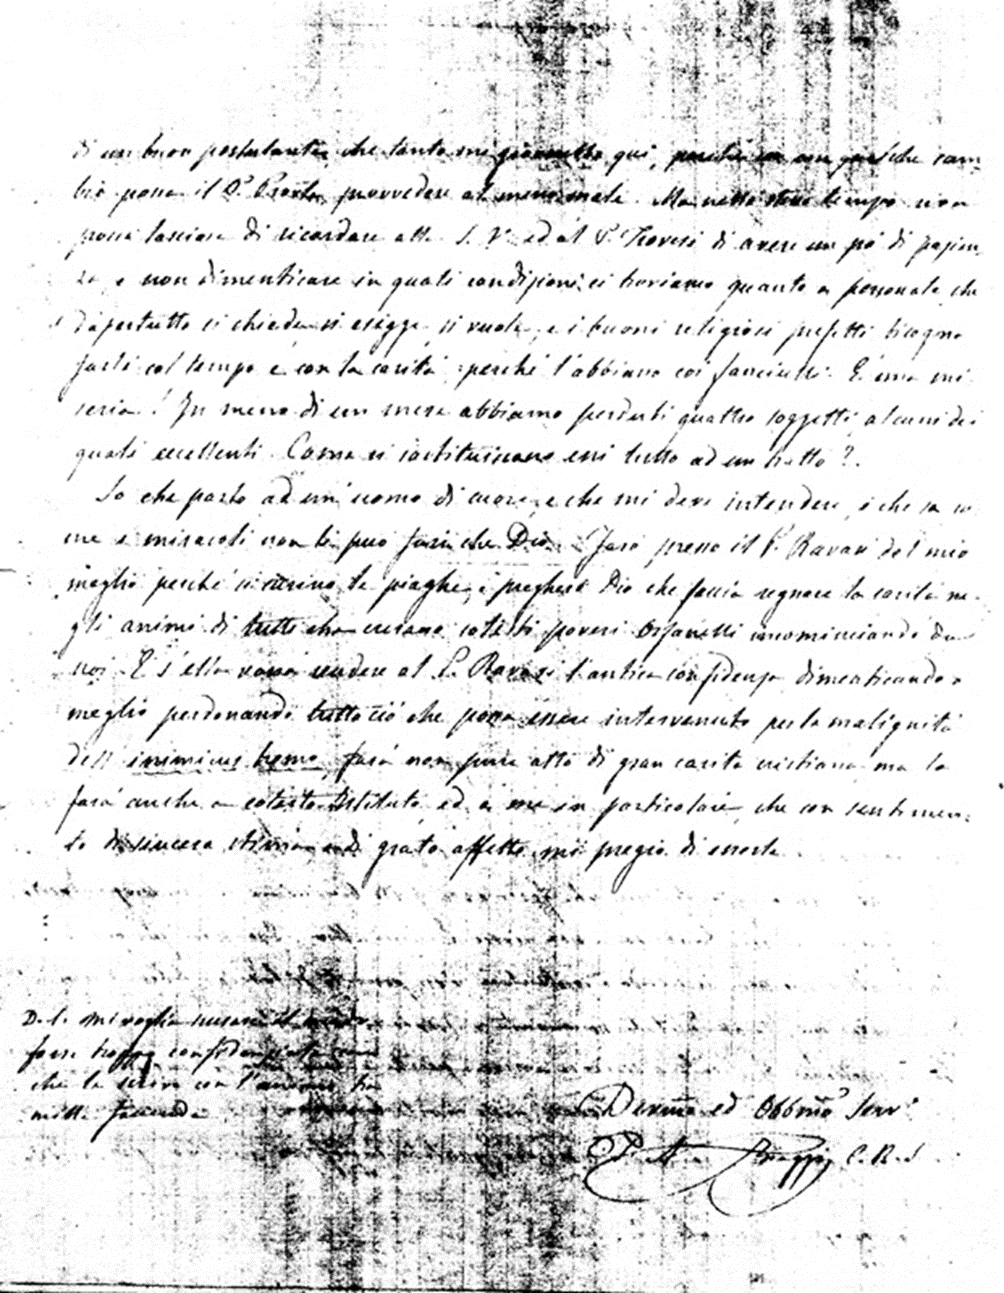 di un buon postulante che tanto mi qui, perchè con qualche cam
bio possa il P. provvedere al meno male. Ma nello stesso tempo non
posso lasciare di ricordare alla S. V. ed al P. di avere un pò di pazien
za, e non dimenticare in quali condizioni ci troviamo quanto a personale che
dapertutto si chiede si esigge si vuole, e i buoni religiosi prefetti bisogna
farli col tempo e con la carità, perchè l'abbiano coi fanciulli. È una mi
seria! In meno di un mese abbiamo perduti quattro soggetti, alcuni dei
quali eccellenti. Come si sostituiscono essi tutto ad un tratto?.
So che parlo ad un uomo di cuore, e che mi deve intendere, e che sa co
me i miracoli non li può fare che Dio. Farò presso il P. Ravasi del mio
meglio perchè si sanino le piaghe, e pregherò Dio che faccia regnare la carità ne
gli animi di tutti che curano cotesti poveri Orfanelli incominciando da
noi. E s'ella vorrà rendere al P. Ravasi l'antica confidenza dimenticando o
meglio perdonando tutto ciò che possa essere intervenuto per la malignità
dell' inimicus homo, farà non pure atto di gran carità cristiana ma lo
farà anche a cotesto Istituto, ed a me in particolare, che con sentimen
to di sincera stima e di grato affetto mi pregio di essere
D. S. Mi voglia scusare
forse troppo confidenziale
che le scrivo con l'animo
Devmo ed Obbmo Serv
C. R. S.